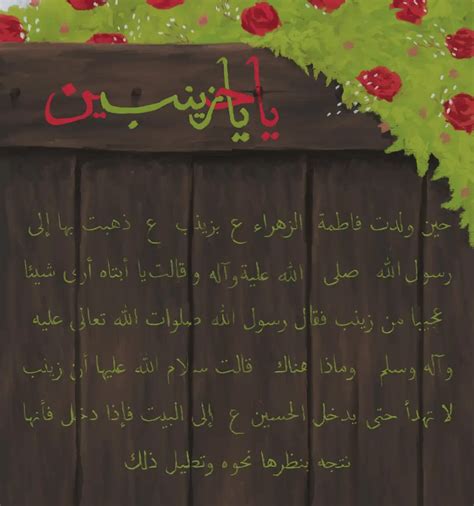 يا حسين يا زينب
حين ولدت فاطمة الزهراء ع بزينب ع ذهبت بها إلى
رسول الله صلى الله علية وآله وقالت يا أبتاه أرى شيئا
عجيبا من زينب فقال رسول الله صلوات الله تعالى عليه
وآله وسلم وماذا هناك قالت سلام الله عليها أن زينب
لا تهدأ حتى يدخل الحسين ع إلى البيت فإذا دخل فأنها
نتجه بنظرها نحوه وتدليل ذلك